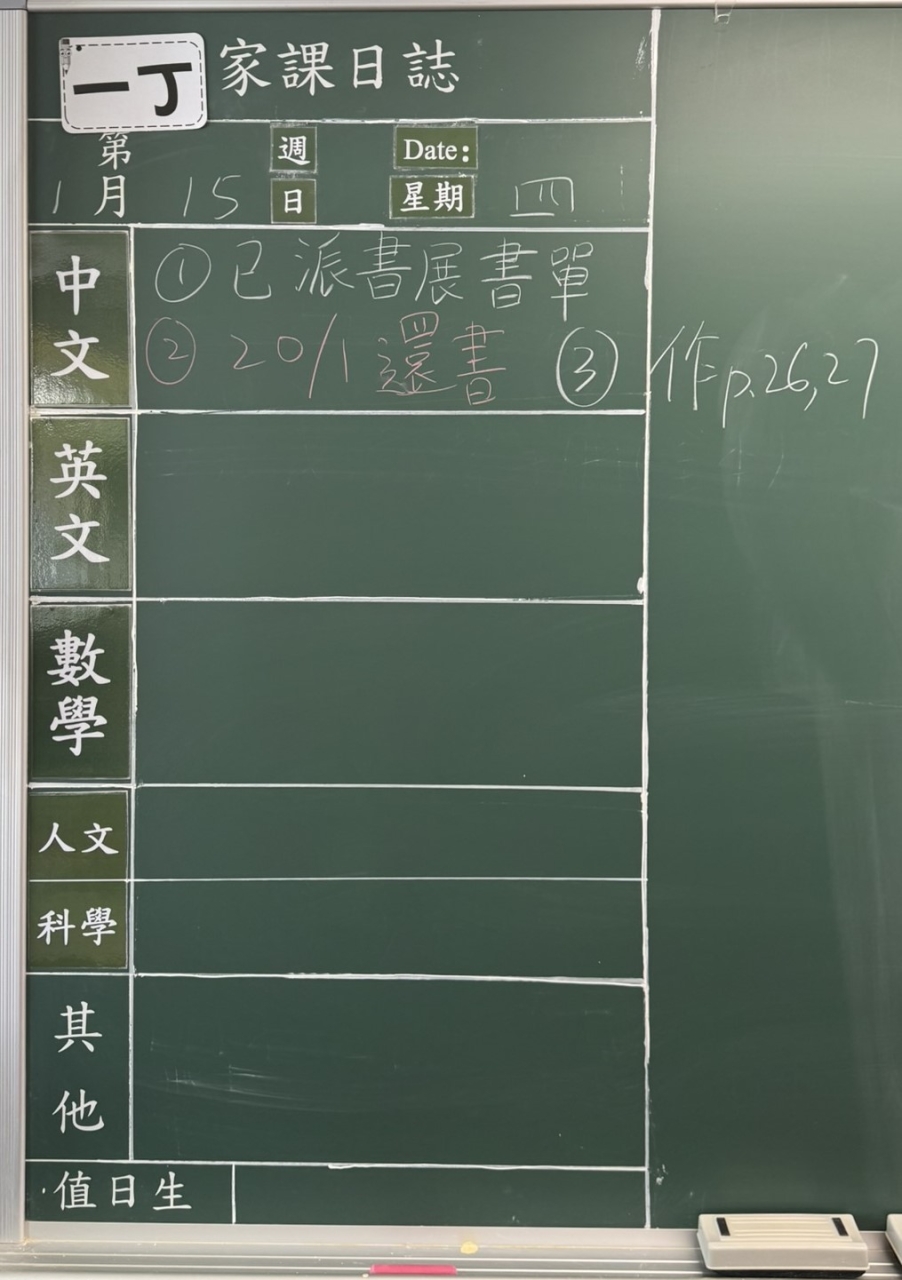 一丁 家課日誌
第 週 Date:
1月 15日 星期 四
中文
①已派書展書單
②20/1還書 ③作p.26,27
英文
數學
人文
科學
其他
值日生